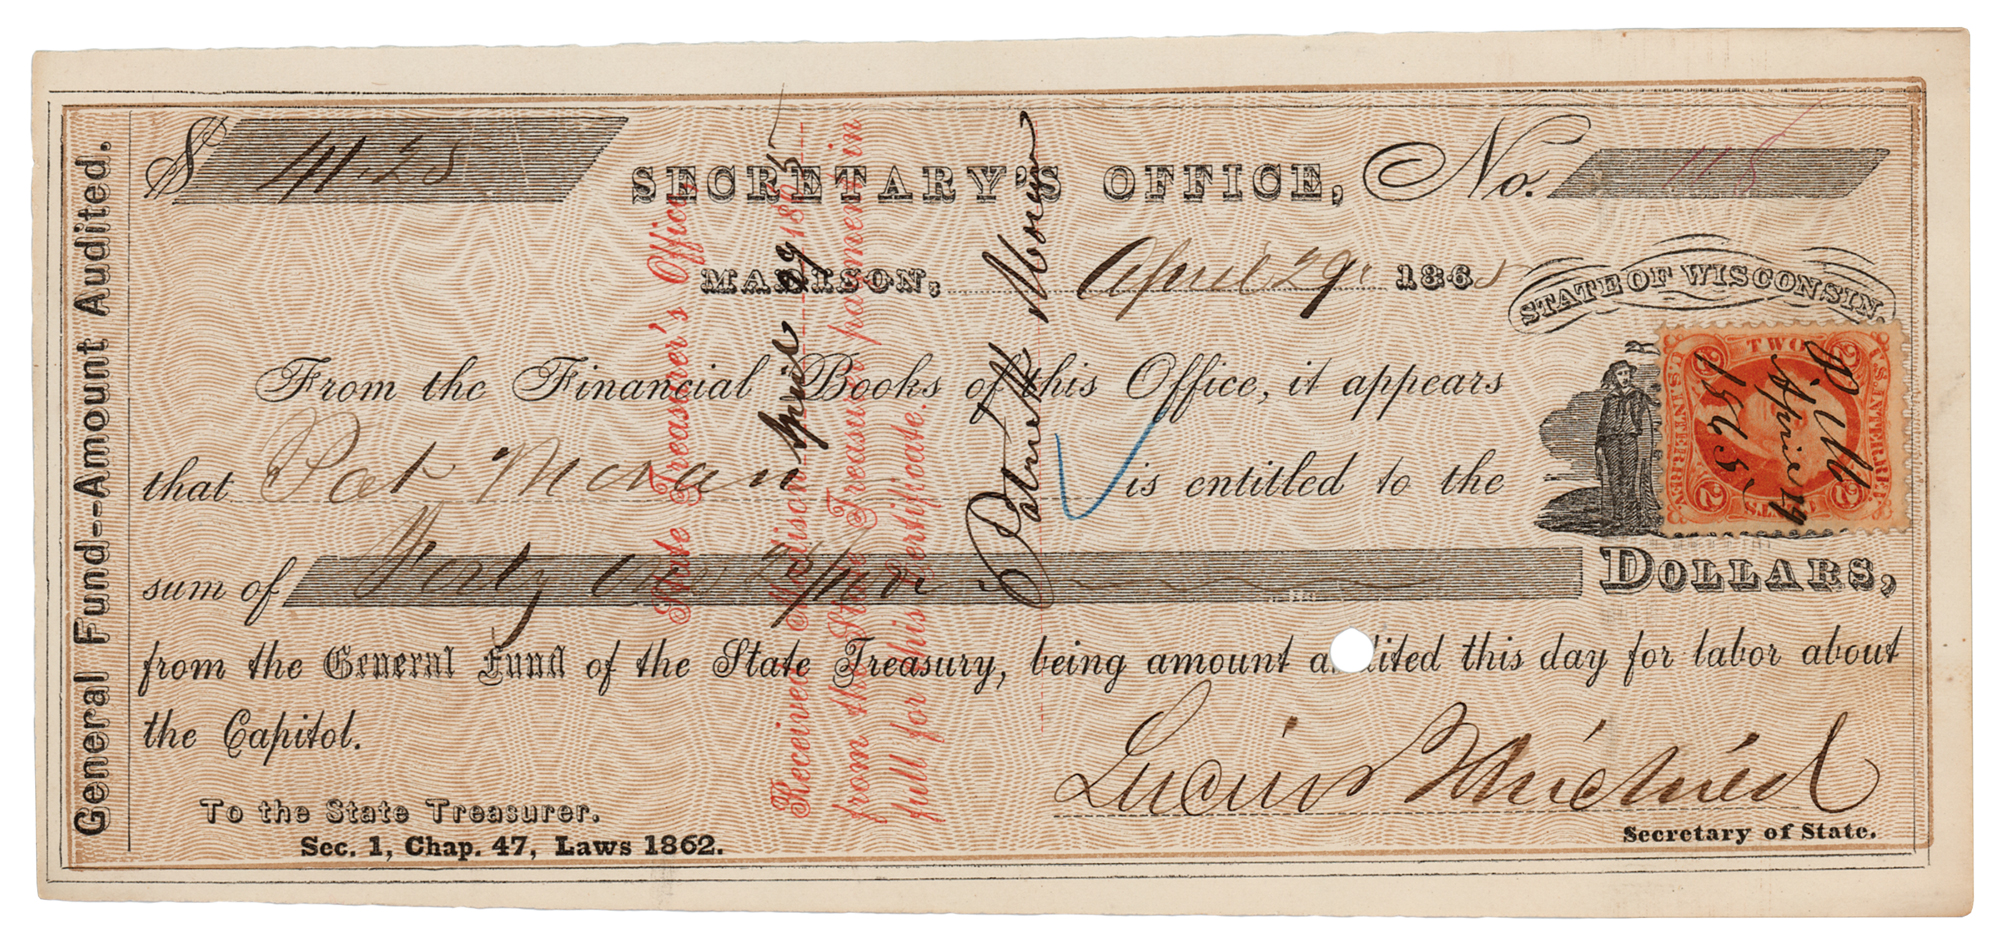 General Fund--Amount Audited.
$ 41.25
SECRETARY'S OFFICE, No. 115
MADISON, April 29. 1865
STATE OF WISCONSIN.
From the Financial Books of this Office, it appears
that Pat Moran is entitled to the
sum of Forty One 25/100 DOLLARS,
from the General Fund of the State Treasury, being amount audited this day for labor about
the Capitol.
Lucius Fairchild
Secretary of State.
To the State Treasurer.
Sec. 1, Chap. 47, Laws 1862.
State Treasurer's Office,
Received, Madison April 29 1865
from the State Treasurer payment in
full for this Certificate.
Patrick Moran
U.S. INTER. REV.
TWO
CENTS
2
2
2
P M
April 29
1865